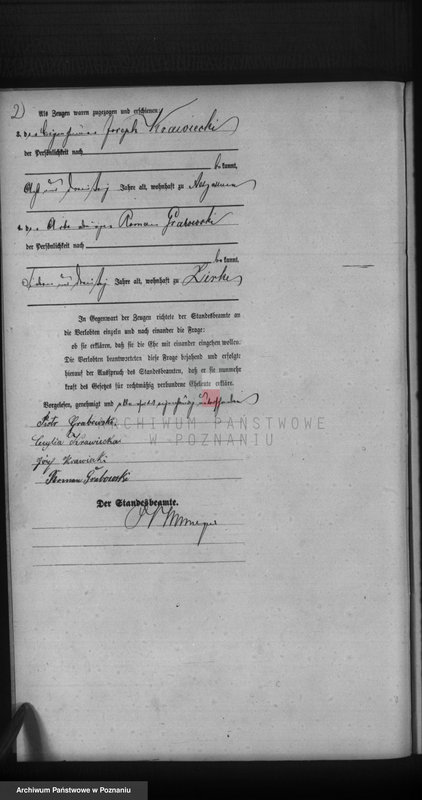 2)
Als Zeugen waren zugezogen und erschienen:
3. der Eigenthümer Joseph Krawiecki
der Persönlichkeit nach
be kannt,
Acht und dreißig Jahre alt, wohnhaft zu
4. der Roman Grabowski
der Persönlichkeit nach
be kannt,
Sieben und dreißig Jahre alt, wohnhaft zu Zirke
In Gegenwart der Zeugen richtete der Standesbeamte an
die Verlobten einzeln und nach einander die Frage:
ob sie erklären, daß sie die Ehe mit einander eingehen wollen.
Die Verlobten beantworteten diese Frage bejahend und erfolgte
hierauf der Ausspruch des Standesbeamten, daß er sie nunmehr
kraft des Gesetzes für rechtmäßig verbundene Eheleute erkläre.
Vorgelesen, genehmigt und
Piotr Grabowski
Cecylia Krawiecka
Józef Krawiecki
Roman Grabowski
Der Standesbeamte.
ARCHIWUM PAŃSTWOWE
W POZNANIU
Archiwum Państwowe w Poznaniu